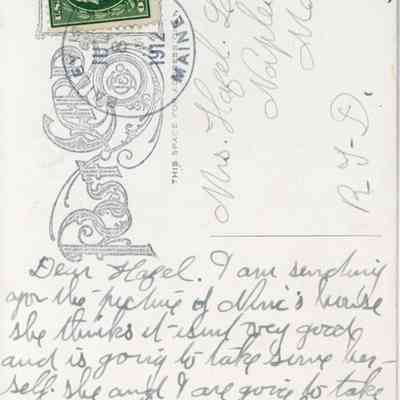 1912
MAINE
Post Card
THIS SPACE
Mrs. Hazel
Naples
R. F. D.
Dear Hazel. I am sending
you the picture of house
she thinks it isnt very good
and is going to take some her-
self. she and I are going to take